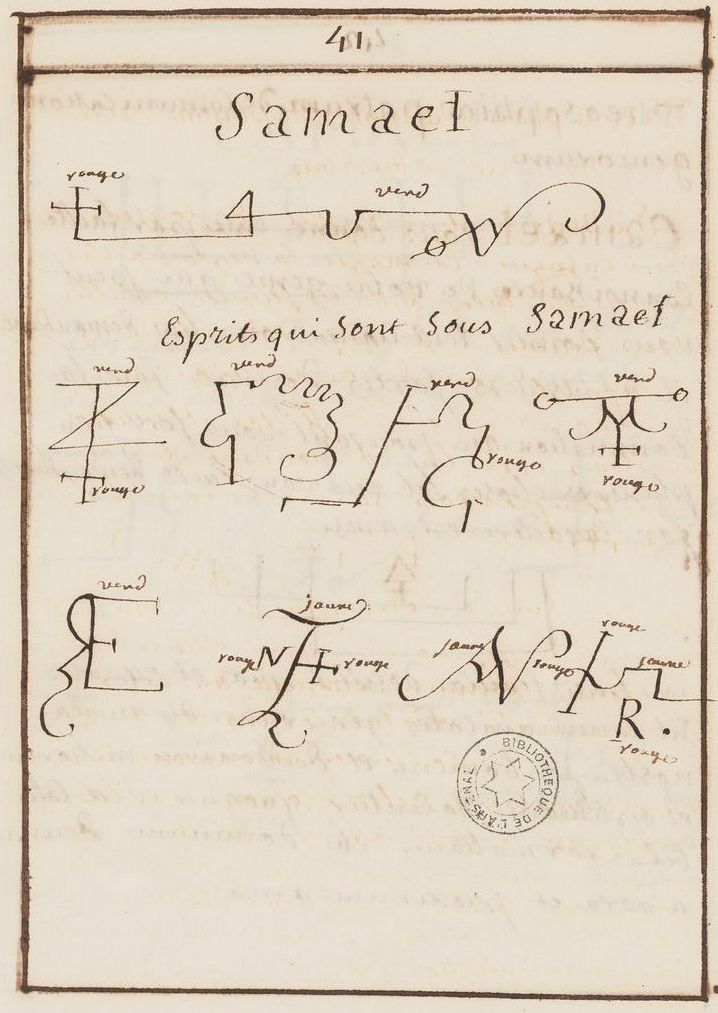 41
Samael
rouge verd
Esprits qui sont sous Samael
verd verd verd verd
rouge rouge rouge
verd jaune rouge
rouge N rouge jaune rouge jaune
R.
rouge
BIBLIOTHEQUE DE L'ARSENAL